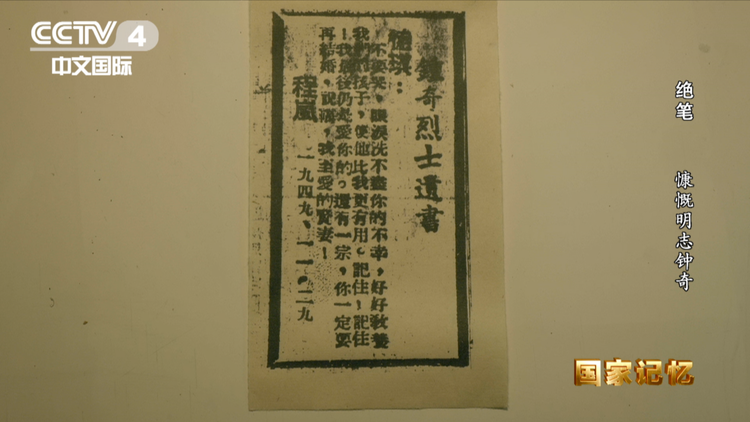 CCTV 4
中文国际
绝笔 慷慨明志钟奇
鍾奇烈士遺書
琪：
不要哭，眼淚洗不盡你的不幸，好好教養
我們孩子，使他比我更有用。記住！記住
！我最後仍是愛你的。還有一宗，你一定要
再結婚，我至愛的賢妻！
程嵐
一九四九、一一、二九
国家记忆